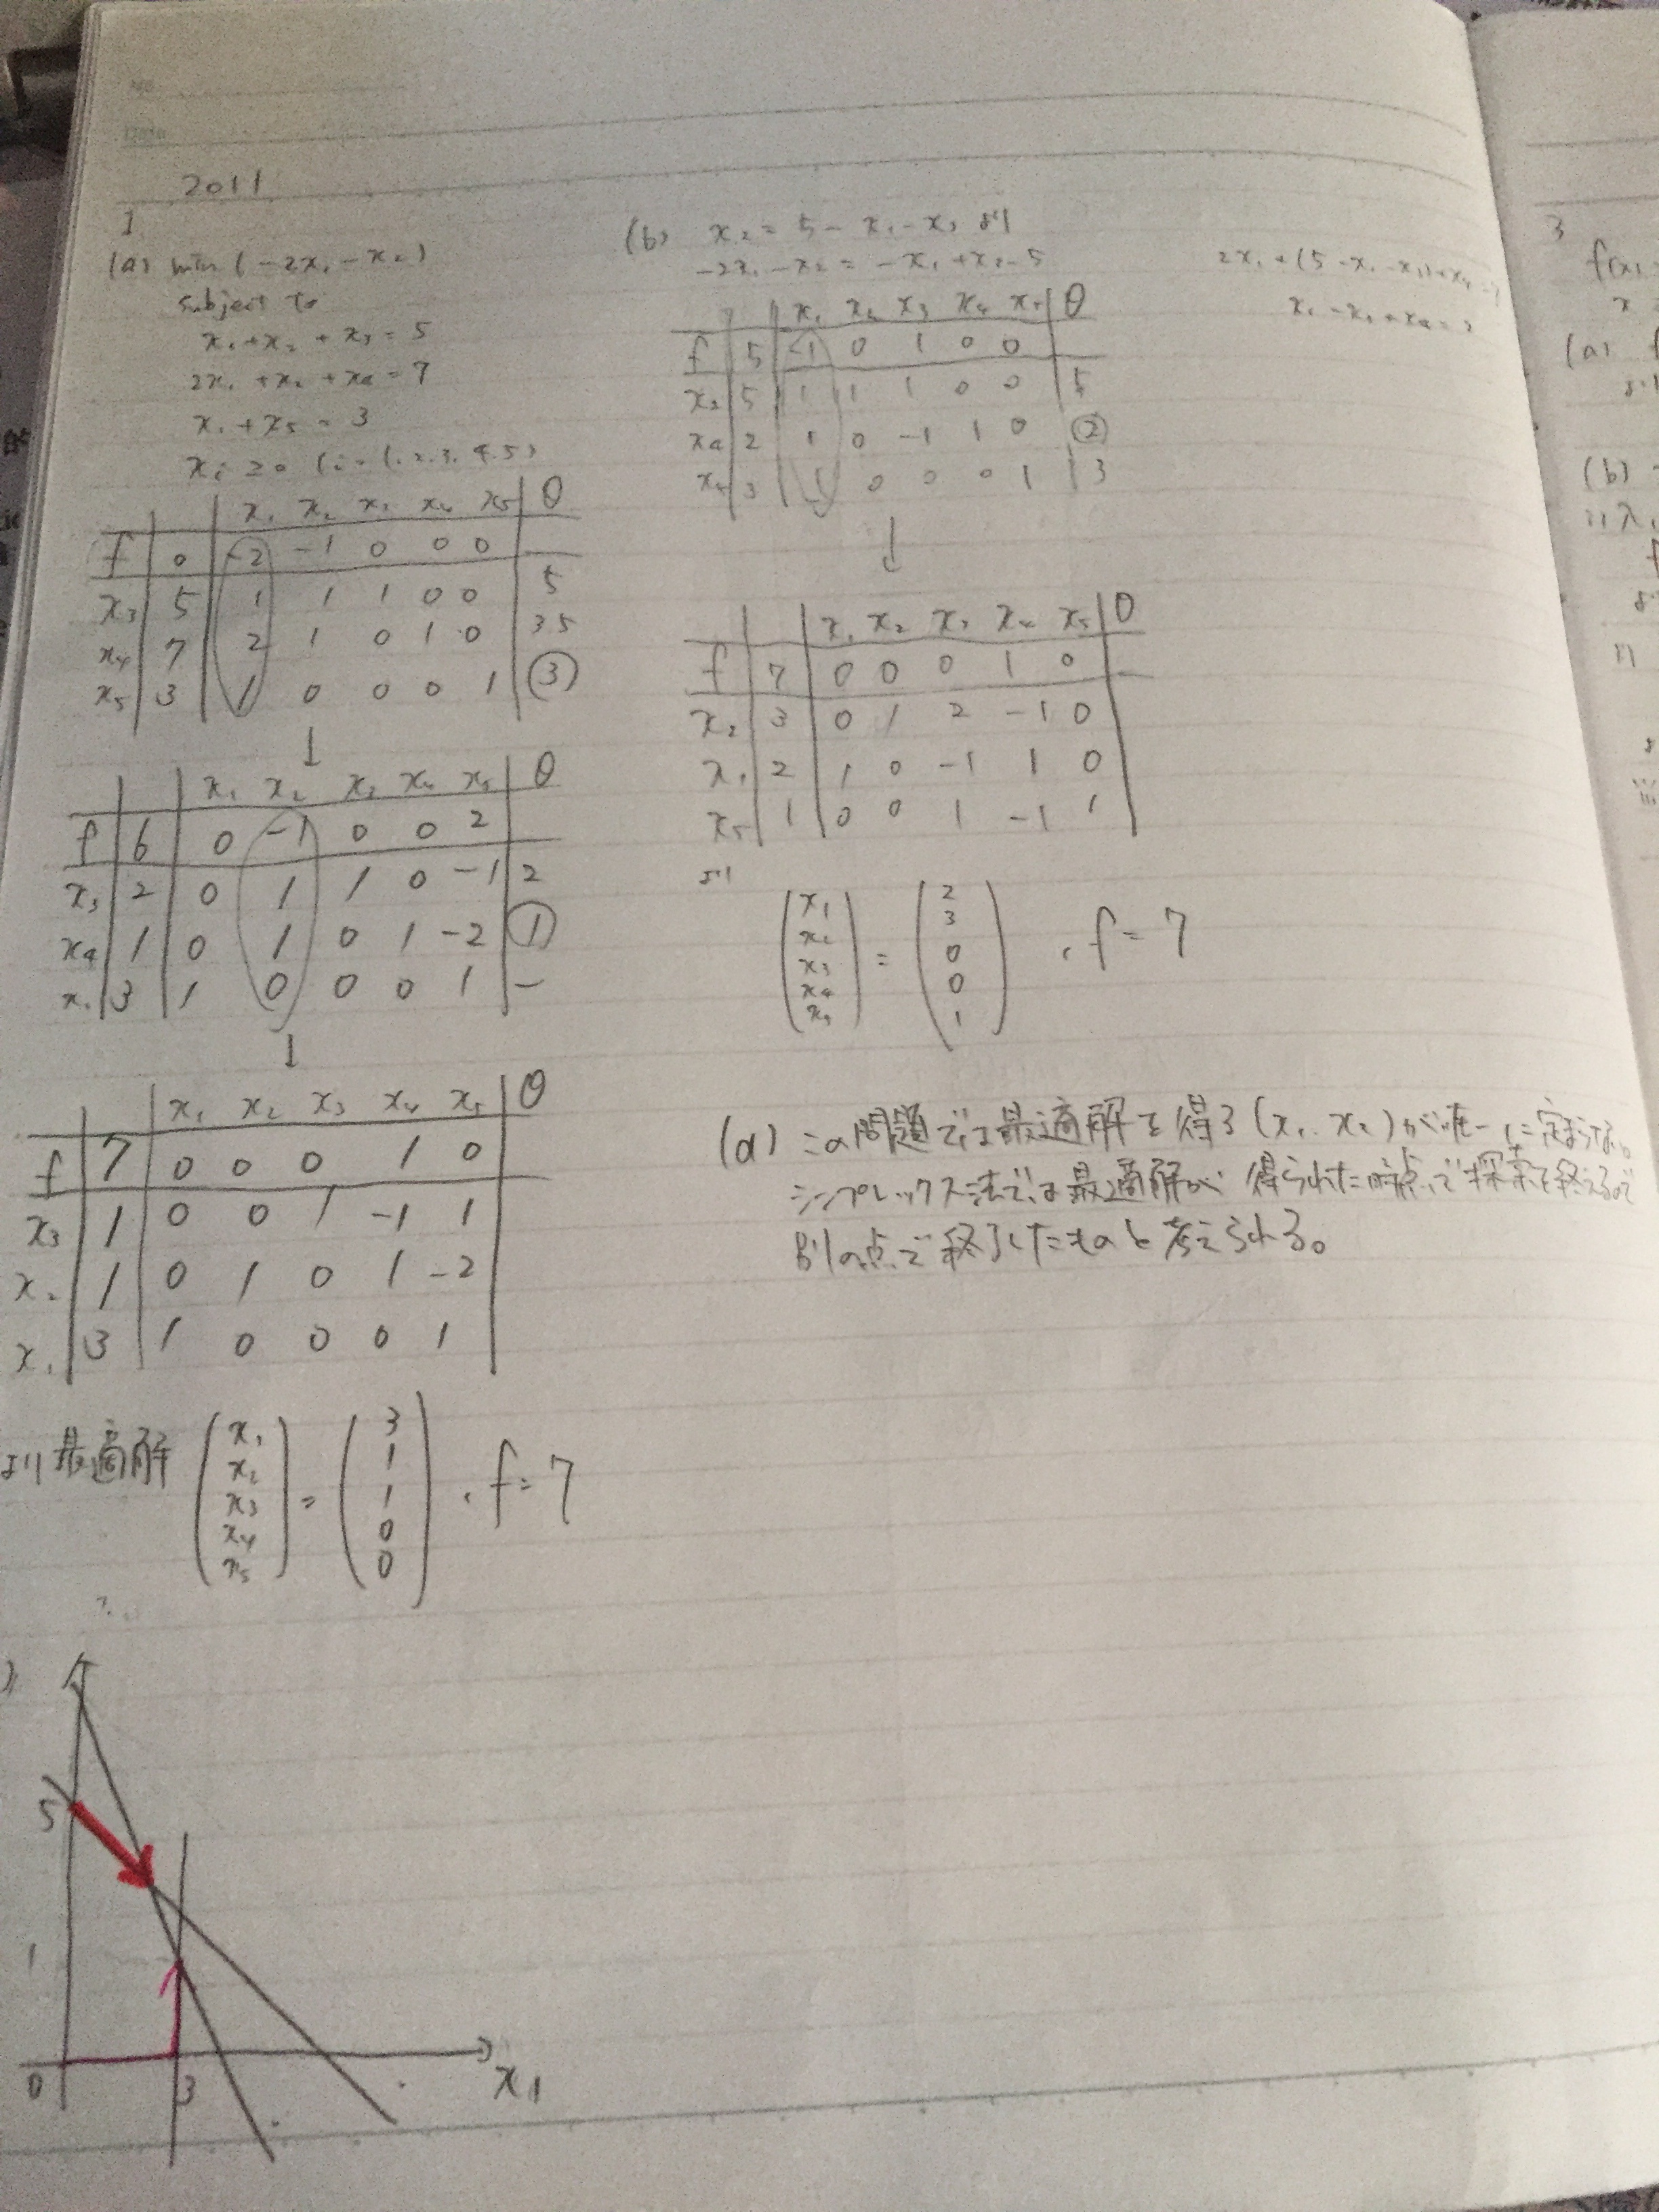 2011
1
(a) min (-2x₁-x₂)
subject to
x₁+x₂+x₃=5
2x₁+x₂+x₄=7
x₁+x₅=3
xᵢ≥0 (i=1.2.3.4.5)
x₁ x₂ x₃ x₄ x₅ θ
f 0 -2 -1 0 0 0
x₃ 5 1 1 1 0 0 5
x₄ 7 2 1 0 1 0 3.5
x₅ 3 1 0 0 0 1 ③
↓
x₁ x₂ x₃ x₄ x₅ θ
f 6 0 -1 0 0 2
x₃ 2 0 1 1 0 -1 2
x₄ 1 0 1 0 1 -2 ①
x₁ 3 1 0 0 0 1 -
↓
x₁ x₂ x₃ x₄ x₅ θ
f 7 0 0 0 1 0
x₃ 1 0 0 1 -1 1
x₂ 1 0 1 0 1 -2
x₁ 3 1 0 0 0 1
より最適解 (x₁ x₂ x₃ x₄ x₅) = (3 1 1 0 0), f=7
5
1
0 3 x₁
(b) x₂=5-x₁-x₃ より
-2x₁-x₂=-x₁+x₃-5
2x₁+(5-x₁-x₃)+x₄=7
x₁-x₃+x₄=2
x₁ x₂ x₃ x₄ x₅ θ
f 5 -1 0 1 0 0
x₂ 5 1 1 1 0 0 5
x₄ 2 1 0 -1 1 0 ②
x₅ 3 1 0 0 0 1 3
↓
x₁ x₂ x₃ x₄ x₅ θ
f 7 0 0 0 1 0
x₂ 3 0 1 2 -1 0
x₁ 2 1 0 -1 1 0
x₅ 1 0 0 1 -1 1
より
(x₁ x₂ x₃ x₄ x₅) = (2 3 0 0 1), f=7
(d) この問題では最適解を得る(x₁.x₂)が唯一に定まらない。
シンプレックス法では最適解が得られた時点で探索を終えるので
別の点で終了したものと考えられる。
3
(a)
(b)